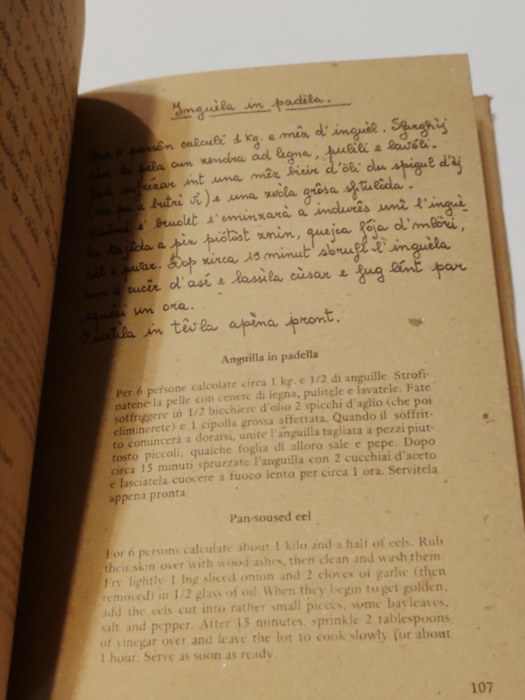 Inguèla in padèla.
parsôn calculì 1 Kg. e mêz d'inguèl. Sfarghij
la pèla cun xendra ad legna, pulìli e lavêli.
int una mêz bicir d'òli du spigul d'aj
butri vi) e una xvòla grôsa sftulêda.
brudet s'cminzarà a indurês unì l'inguè
la tajêda a pix piôtost znin, quejca fója d'mlôri,
sêl e pevar. Dop xirca 15 minut sbrufì l'inguèla
cucêr d'asé e lassìla cùsar e fug lént par
squési un ora.
Purtìla in têvla apèna pront.
Anguilla in padella
Per 6 persone calcolate circa 1 kg. e 1/2 di anguille. Strofi-
natene la pelle con cenere di legna, pulitele e lavatele. Fate
soffriggere in 1/2 bicchiere d'olio 2 spicchi d'aglio (che poi
eliminerete) e 1 cipolla grossa affettata. Quando il soffrit-
to comincerà a dorarsi, unite l'anguilla tagliata a pezzi piut-
tosto piccoli, qualche foglia di alloro sale e pepe. Dopo
circa 15 minuti spruzzate l'anguilla con 2 cucchiai d'aceto
e lasciatela cuocere a fuoco lento per circa 1 ora. Servitela
appena pronta.
Pan-soused eel
For 6 persons calculate about 1 kilo and a half of eels. Rub
their skin over with wood ashes, then clean and wash them.
Fry lightly 1 big sliced onion and 2 cloves of garlic (then
removed) in 1/2 glass of oil. When they begin to get golden,
add the eels cut into rather small pieces, some bayleaves,
salt and pepper. After 15 minutes, sprinkle 2 tablespoons
of vinegar over and leave the lot to cook slowly for about
1 hour. Serve as soon as ready.
107